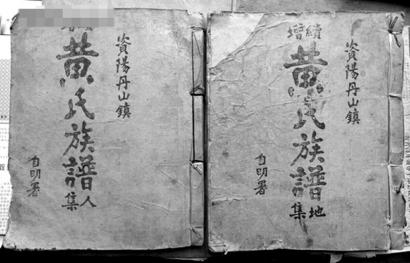 資陽丹山鎮
續增
黃氏族譜
地集
明署
資陽丹山鎮
黃氏族譜
人集
明署